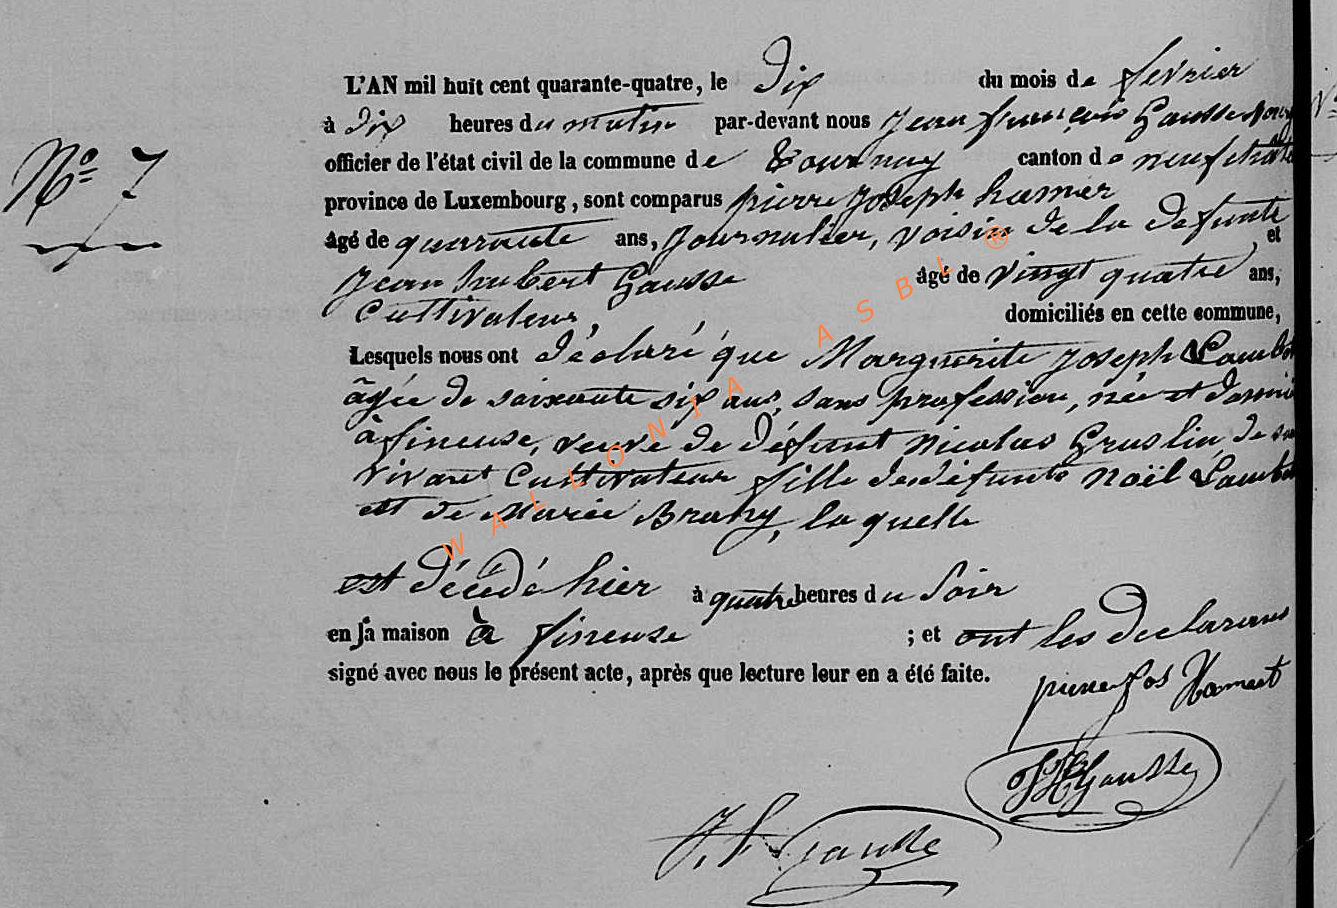 L'AN mil huit cent quarante-quatre, le dix du mois de fevrier
à dix heures du matin par-devant nous jean françois Gausse
officier de l'état civil de la commune de Tournay canton de neufchate
N° 7
province de Luxembourg, sont comparus pierre joseph hamer
âgé de quarante ans, journalier, voisin de la defunte et
jean hubert Gausse âgé de vingt quatre ans,
Cultivateur, domiciliés en cette commune,
Lesquels nous ont déclaré que Marguerite joseph Lamb
âgée de soixante six ans, sans profession, née et domi
à fineuse, veuve de défunt nicolas Gruslin, de
vivant Cultivateur fille des défunts Noël Lamb
et de Marie Brahy, la quelle
est décédé hier à quatre heures du soir
en sa maison à fineuse ; et ont les declarans
signé avec nous le présent acte, après que lecture leur en a été faite.
pierre jos Hamert
JH Gausse
J. f. Gausse
WALLONIA ASBL ®